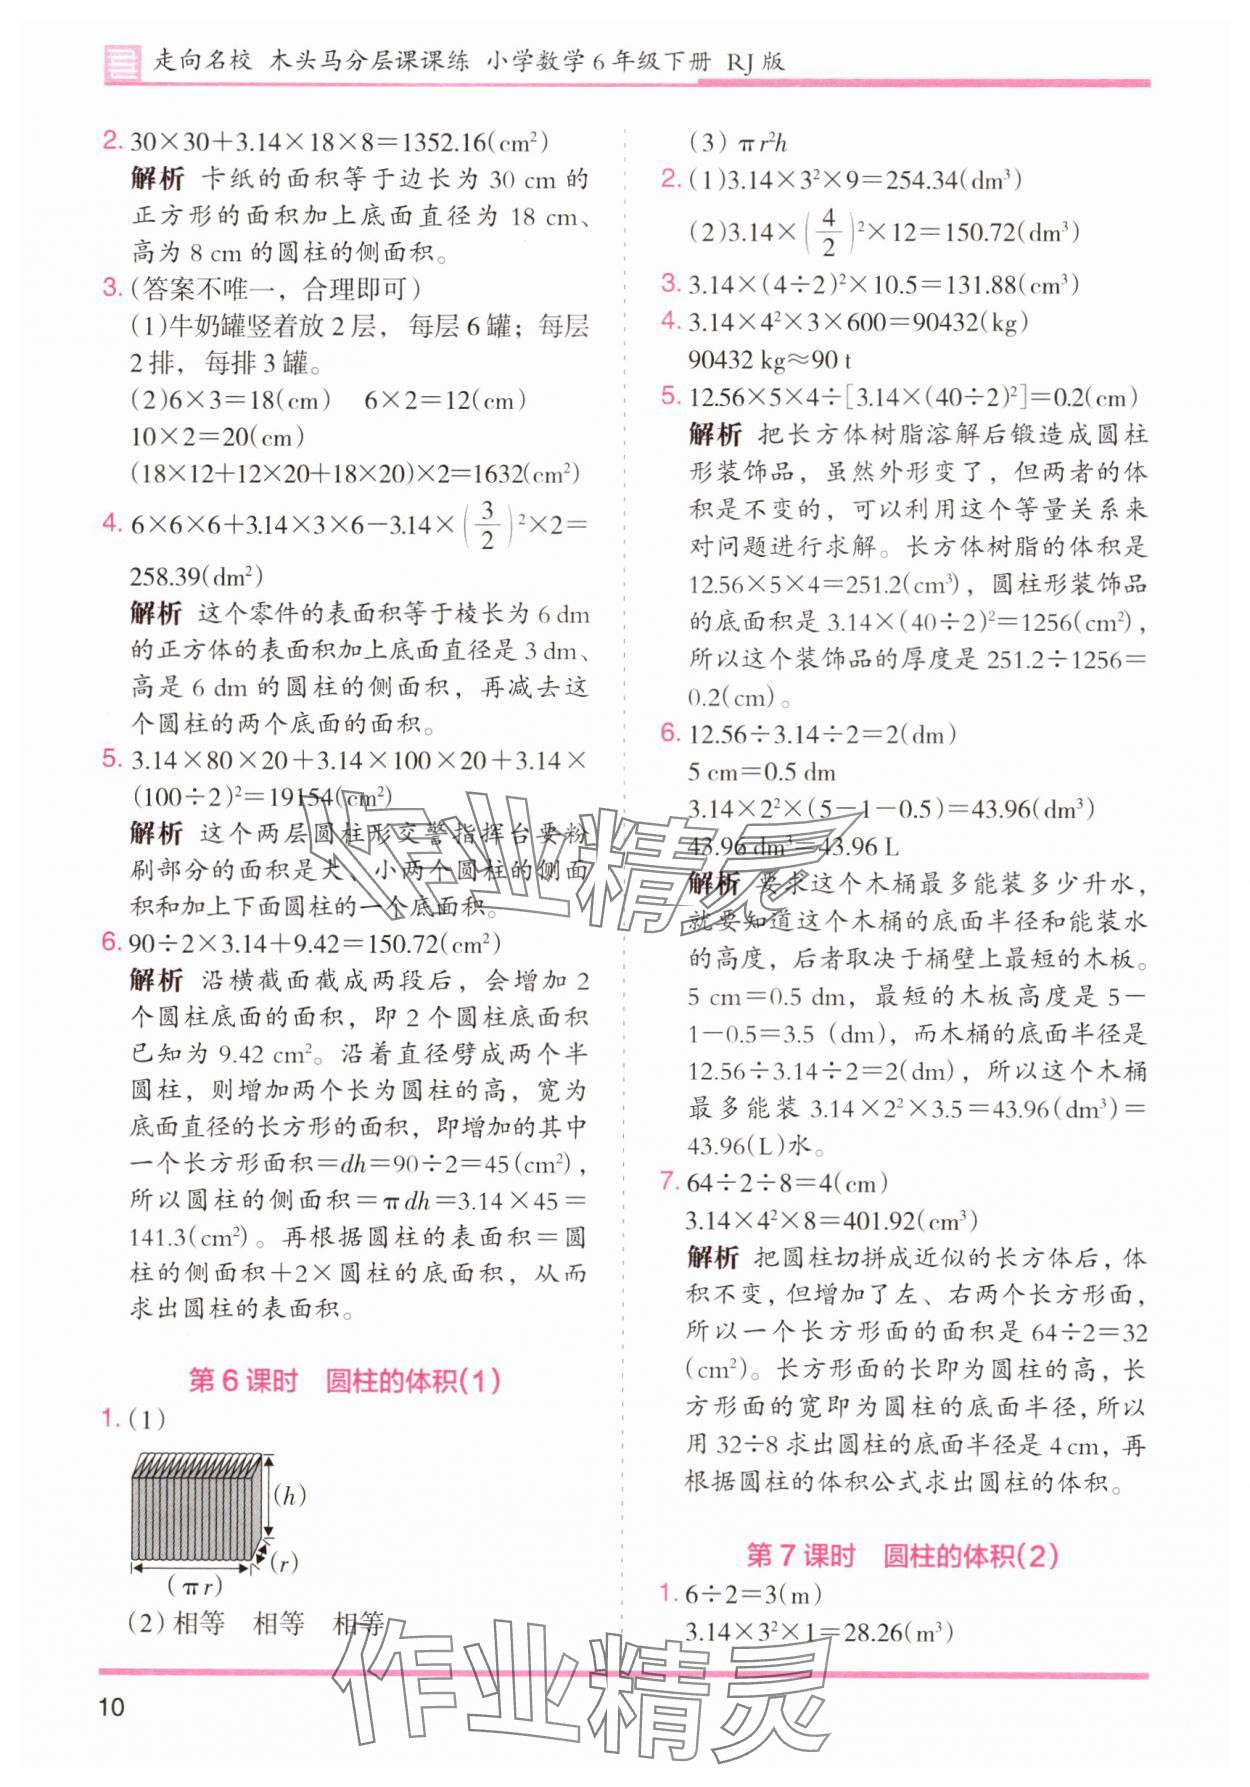 走向名校 木头马分层课课练 小学数学6年级下册 RJ版
2. 30×30+3.14×18×8=1352.16(cm²)
解析 卡纸的面积等于边长为 30 cm 的
正方形的面积加上底面直径为 18 cm、
高为 8 cm 的圆柱的侧面积。
3. (答案不唯一，合理即可)
(1)牛奶罐竖着放2层，每层6罐；每层
2排，每排3罐。
(2)6×3=18(cm) 6×2=12(cm)
10×2=20(cm)
(18×12+12×20+18×20)×2=1632(cm²)
4. 6×6×6+3.14×3×6-3.14×(3/2)²×2=
258.39(dm²)
解析 这个零件的表面积等于棱长为 6 dm
的正方体的表面积加上底面直径是 3 dm、
高是 6 dm 的圆柱的侧面积，再减去这
个圆柱的两个底面的面积。
5. 3.14×80×20+3.14×100×20+3.14×
(100÷2)²=19154(cm²)
解析 这个两层圆柱形交警指挥台要粉
刷部分的面积是大、小两个圆柱的侧面
积和加上下面圆柱的一个底面积。
6. 90÷2×3.14+9.42=150.72(cm²)
解析 沿横截面截成两段后，会增加 2
个圆柱底面的面积，即 2 个圆柱底面积
已知为 9.42 cm²。沿着直径劈成两个半
圆柱，则增加两个长为圆柱的高，宽为
底面直径的长方形的面积，即增加的其中
一个长方形面积=dh=90÷2=45(cm²)，
所以圆柱的侧面积=πdh=3.14×45=
141.3(cm²)。再根据圆柱的表面积=圆
柱的侧面积+2×圆柱的底面积，从而
求出圆柱的表面积。
第 6 课时 圆柱的体积(1)
1. (1)
(h)
(r)
(πr)
(2)相等 相等 相等
(3) πr²h
2. (1)3.14×3²×9=254.34(dm³)
(2)3.14×(4/2)²×12=150.72(dm³)
3. 3.14×(4÷2)²×10.5=131.88(cm³)
4. 3.14×4²×3×600=90432(kg)
90432 kg≈90 t
5. 12.56×5×4÷[3.14×(40÷2)²]=0.2(cm)
解析 把长方体树脂溶解后锻造成圆柱
形装饰品，虽然外形变了，但两者的体
积是不变的，可以利用这个等量关系来
对问题进行求解。长方体树脂的体积是
12.56×5×4=251.2(cm³)，圆柱形装饰品
的底面积是 3.14×(40÷2)²=1256(cm²)，
所以这个装饰品的厚度是 251.2÷1256=
0.2(cm)。
6. 12.56÷3.14÷2=2(dm)
5 cm=0.5 dm
3.14×2²×(5-1-0.5)=43.96(dm³)
43.96 dm³=43.96 L
解析 要求这个木桶最多能装多少升水，
就要知道这个木桶的底面半径和能装水
的高度，后者取决于桶壁上最短的木板。
5 cm=0.5 dm，最短的木板高度是 5-
1-0.5=3.5 (dm)，而木桶的底面半径是
12.56÷3.14÷2=2(dm)，所以这个木桶
最多能装 3.14×2²×3.5=43.96(dm³)=
43.96(L)水。
7. 64÷2÷8=4(cm)
3.14×4²×8=401.92(cm³)
解析 把圆柱切拼成近似的长方体后，体
积不变，但增加了左、右两个长方形面，
所以一个长方形面的面积是 64÷2=32
(cm²)。长方形面的长即为圆柱的高，长
方形面的宽即为圆柱的底面半径，所以
用 32÷8 求出圆柱的底面半径是 4 cm，再
根据圆柱的体积公式求出圆柱的体积。
第 7 课时 圆柱的体积(2)
1. 6÷2=3(m)
3.14×3²×1=28.26(m³)
10
作业精灵
作业精灵